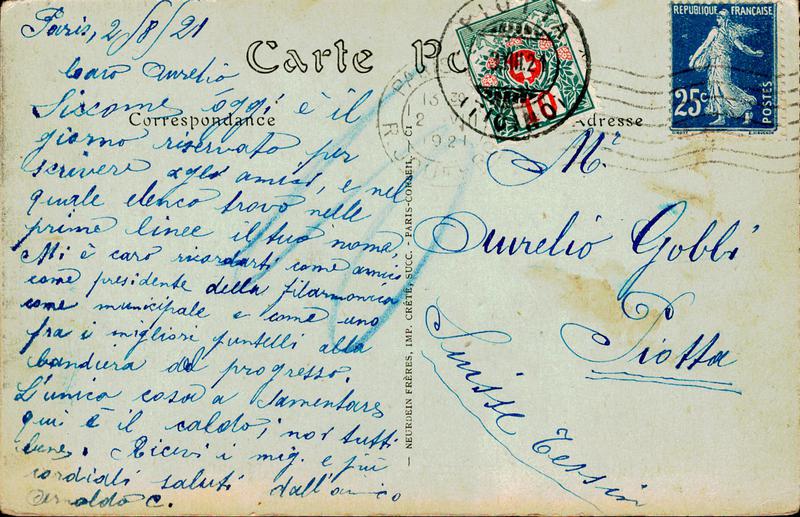 Paris, 2/8/21
Carte Po
Caro Aurelio
Siccome oggi è il
Correspondance
giorno riservato per
scrivere agli amici, e nel
quale elenco trovo nelle
prime linee il tuo nome,
Mi è caro ricordarti come amico
come presidente della filarmonica
come municipale e come uno
fra i migliori puntelli alla
bandiera del progresso.
L'unica cosa a lamentare
qui è il caldo; noi tutti
bene. Ricevi i mig. e più
cordiali saluti dall'amico
Arnoldo C.
NEURDEIN FRÈRES, IMP. CRÉTÉ, SUCC. - PARIS-CORBEIL
PIOTTA
10
REPUBLIQUE FRANÇAISE
25c
POSTES
Adresse
Mr
Aurelio Gobbi
Piotta
Suisse Tessin